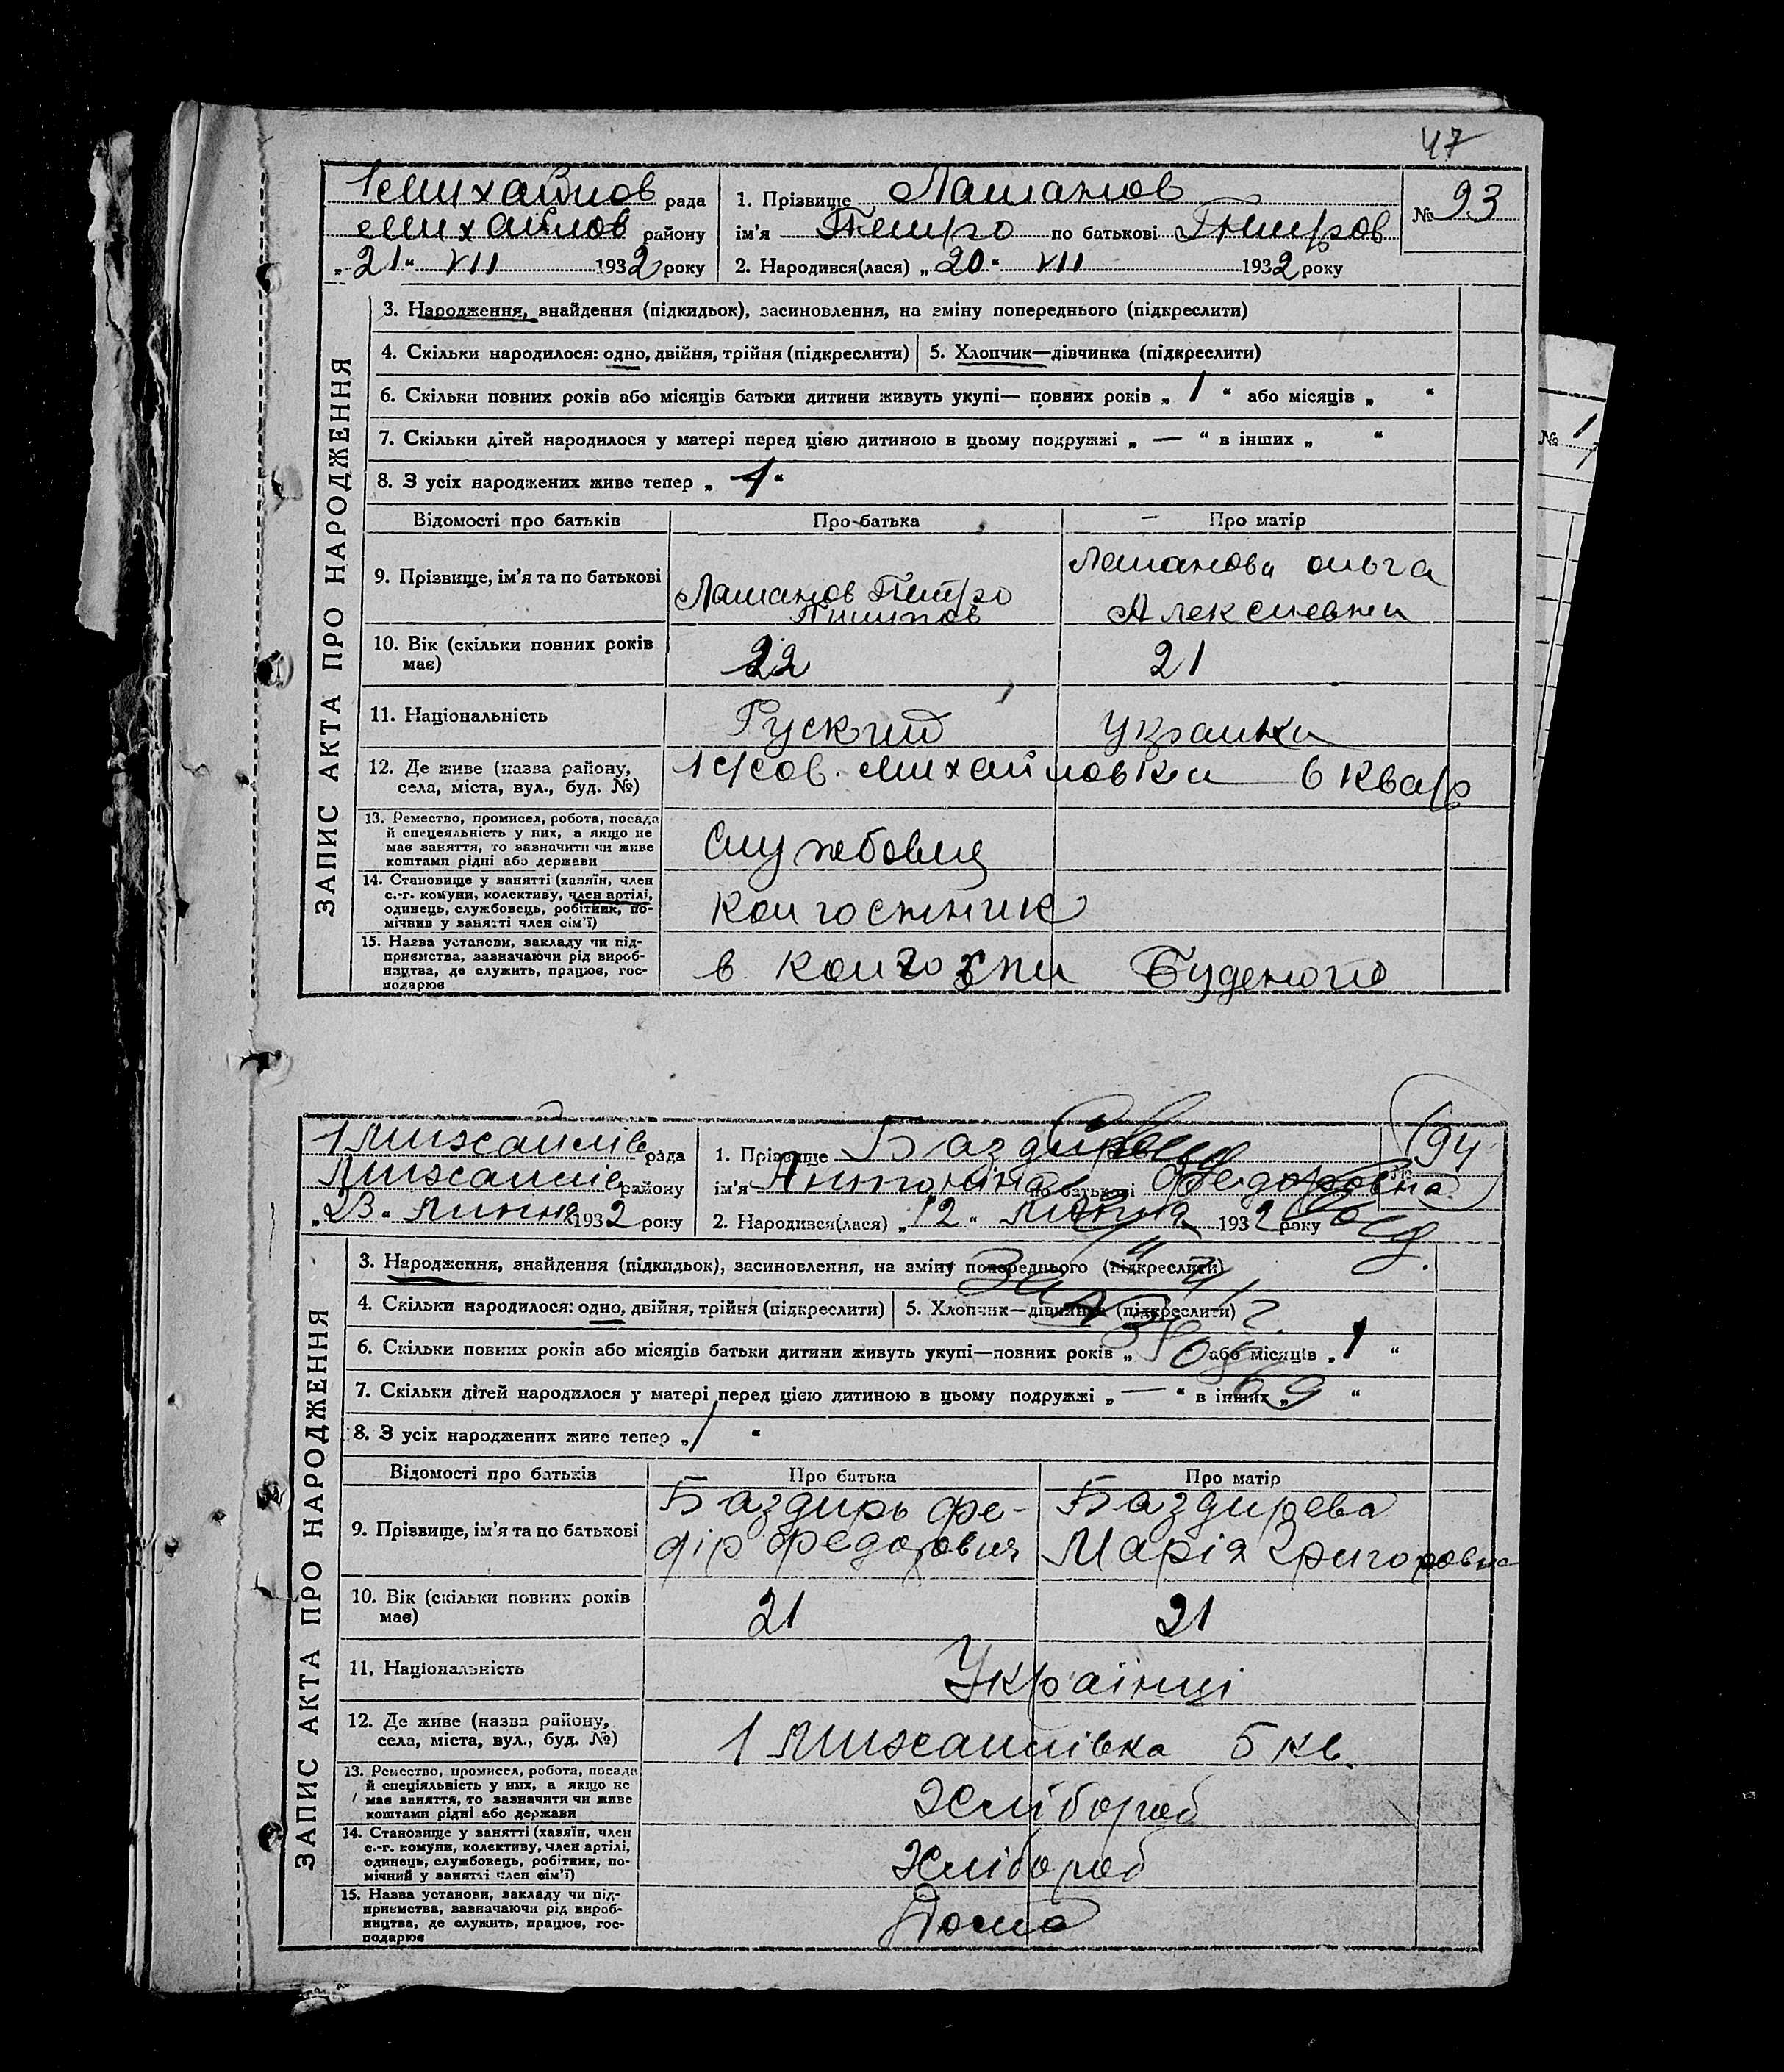 47
1 Михайлов рада
Михайлов району
„21“ VII 1932 року
1. Прізвище Лашанов
ім'я Петро по батькові Петров
2. Народився(лася) „20“ VII 1932 року
№ 93
ЗАПИС АКТА ПРО НАРОДЖЕННЯ
3. Народження, знайдення (підкидьок), засиновлення, на зміну попереднього (підкреслити)
4. Скільки народилося: одно, двійня, трійня (підкреслити) 5. Хлопчик—дівчинка (підкреслити)
6. Скільки повних років або місяців батьки дитини живуть укупі— повних років „ 1 “ або місяців „ “
7. Скільки дітей народилося у матері перед цією дитиною в цьому подружжі „ — “ в інших „ “
8. З усіх народжених живе тепер „ 1 “
Відомості про батьків Про батька Про матір
9. Прізвище, ім'я та по батькові
Лашанов Петро
Пилипов
Лашанова Ольга
Алексиевни
10. Вік (скільки повних років
має)
22 21
11. Національність Руский Украинка
12. Де живе (назва району,
села, міста, вул., буд. №)
1 с/сов. Михайловка 6 квар
13. Ремество, промисел, робота, посада
й спецеяльність у них, а якщо не
має заняття, то зазначити чи живе
коштами рідні або держави
Службовец
14. Становище у занятті (хазяїн, член
с.-г. комуни, колективу, член артілі,
одинець, службовець, робітник, по-
мічнив у занятті член сім'ї)
Колгоспник
15. Назва установи, закладу чи під-
приємства, зазначаючи рід вироб-
ництва, де служить, працює, гос-
подарює
в колгоспи Буденого
1 Михайлів рада
Михайлів району
„23“ Липня 1932 року
1. Прізвище Баздирева
ім'я Антоніна по батькові Федоровна
2. Народився(лася) „12“ Липня 1932 року
№ 94
ЗАПИС АКТА ПРО НАРОДЖЕННЯ
3. Народження, знайдення (підкидьок), засиновлення, на зміну попереднього (підкреслити)
4. Скільки народилося: одно, двійня, трійня (підкреслити) 5. Хлопчик—дівчинка (підкреслити)
6. Скільки повних років або місяців батьки дитини живуть укупі—повних років „ або місяців „ 1 “
7. Скільки дітей народилося у матері перед цією дитиною в цьому подружжі „ — “ в інших „ “
8. З усіх народжених живе тепер „ 1 “
Відомості про батьків Про батька Про матір
9. Прізвище, ім'я та по батькові
Баздирь Фе-
дір Федорович
Баздирева
Марія Григоровна
10. Вік (скільки повних років
має)
21 21
11. Національність Українці
12. Де живе (назва району,
села, міста, вул., буд. №)
1 Михайлівка 5 кв.
13. Ремество, промисел, робота, посада
й спеціяльність у них, а якщо не
має заняття, то зазначити чи живе
коштами рідні або держави
Хлібороб
14. Становище у занятті (хазяїн, член
с.-г. комуни, колективу, член артілі,
одинець, службовець, робітник, по-
мічний у занятті член сім'ї)
Хлібороб
15. Назва установи, закладу чи під-
приємства, зазначаючи рід вироб-
ництва, де служить, працює, гос-
подарює
Дома
№ 1